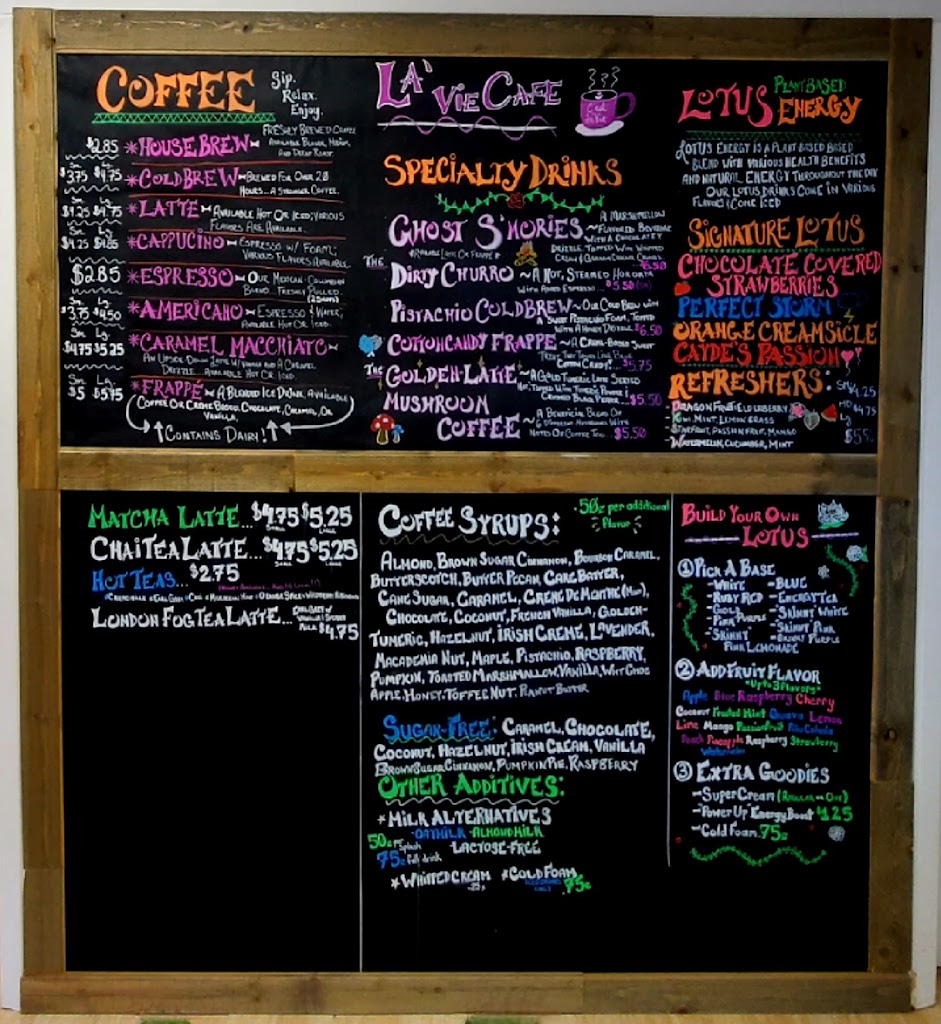 COFFEE
Sip.
Relax.
Enjoy.
$2.85 *HOUSE BREW~ FRESHLY BREWED COFFEE
AVAILABLE BLONDE, MEDIUM,
AND DECAF ROAST.
Sm. Lg.
$3.75 $4.75 *COLD BREW~ BREWED FOR OVER 20
HOURS... A STRONGER COFFEE.
Sm. Lg.
$4.25 $4.75 *LATTE~ AVAILABLE HOT OR ICED; VARIOUS
FLAVORS ARE AVAILABLE.
Sm. Lg.
$4.25 $4.85 *CAPPUCINO~ ESPRESSO W/ FOAM;
VARIOUS FLAVORS AVAILABLE
$2.85 *ESPRESSO~ OUR MEXICAN-COLUMBIAN
BLEND... FRESHLY PULLED
Sm. Lg.
$3.75 $4.50 *AMERICANO~ ESPRESSO & WATER,
AVAILABLE HOT OR ICED.
Sm. Lg.
$4.75 $5.25 *CARAMEL MACCHIATO~
AN UPSIDE DOWN LATTE W/ VANILLA AND A CARAMEL
DRIZZLE... AVAILABLE HOT OR ICED.
Sm. Lg.
$5 $5.75 *FRAPPÉ~ A BLENDED ICE DRINK, AVAILABLE
COFFEE OR CREME BASED, CHOCOLATE, CARAMEL, OR
VANILLA.
CONTAINS DAIRY!
LA' VIE CAFE
SPECIALTY DRINKS
GHOST S'MORIES ~A MARSHMELLOW
FLAVORED BEVERAGE
WITH A CHOCOLATEY
DRIZZLE. TOPPED WITH WHIPPED
CREAM & GRAHAM CRACKER CRUMBS
$6.50
THE DIRTY CHURRO ~A HOT, STEAMED HORCHATA
WITH ADDED ESPRESSO ~$5.50
PISTACHIO COLD BREW ~OUR COLD BREW WITH
A SWEET PISTACHIO FOAM, TOPPED
WITH A HONEY DRIZZLE $6.50
COTTON CANDY FRAPPE ~A CREME-BASED TREAT
THAT TASTES LIKE BLUE
COTTON CANDY! $5.75
THE GOLDEN-LATTE ~A GOLD TUMERIC LATTE SERVED
HOT. TOPPED WITH TUMERIC &
GROUND BLACK PEPPER $5.50
MUSHROOM
COFFEE ~A BENEFICIAL BLEND OF
6 DIFFERENT MUSHROOMS WITH
NOTES OF COFFEE TOO... $5.50
LOTUS PLANT BASED
ENERGY
LOTUS ENERGY IS A PLANT BASED BASED
BLEND WITH VARIOUS HEALTH BENEFITS
AND NATURAL ENERGY THROUGHOUT THE DAY
OUR LOTUS DRINKS COME IN VARIOUS
FLAVORS & COME ICED
SIGNATURE LOTUS
CHOCOLATE COVERED
STRAWBERRIES
PERFECT STORM
ORANGE CREAMSICLE
CAYDE'S PASSION
REFRESHERS:
SM $4.25
MD $4.75
DRAGON FRUIT ELDERBERRY
KIWI, MINT, LEMON GRASS
STARFRUIT, PASSIONFRUIT, MANGO
WATERMELON, CUCUMBER, MINT
MATCHA LATTE... $4.75 $5.25
SMALL LARGE
CHAI TEA LATTE... $4.75 $5.25
SMALL LARGE
HOT TEAS... $2.75
LONDON FOG TEA LATTE... EARL GREY W/
VANILLA & STEAMED
MILK $4.75
COFFEE SYRUPS:
.50¢ per additional
flavor
ALMOND, BROWN SUGAR CINNAMON, BOURBON CARAMEL,
BUTTERSCOTCH, BUTTER PECAN, CAKE BATTER,
CANE SUGAR, CARAMEL, CREME DE MENTHE (MINT),
CHOCOLATE, COCONUT, FRENCH VANILLA, GOLDEN-
TUMERIC, HAZELNUT, IRISH CREME, LAVENDER,
MACADEMIA NUT, MAPLE, PISTACHIO, RASPBERRY,
PUMPKIN, TOASTED MARSHMALLOW, VANILLA, WHT CHOC
APPLE, HONEY, TOFFEE NUT, PEANUT BUTTER
SUGAR-FREE: CARAMEL, CHOCOLATE,
COCONUT, HAZELNUT, IRISH CREAM, VANILLA
BROWN SUGAR CINNAMON, PUMPKIN PIE, RASPBERRY
OTHER ADDITIVES:
*MILK ALTERNATIVES
-OATMILK -ALMOND MILK
50¢ per splash -LACTOSE-FREE
75¢ full drink
*WHIPPED CREAM *COLD FOAM
75¢
BUILD YOUR OWN
LOTUS
① PICK A BASE
~WHITE ~BLUE
~RUBY RED ~ENERGY TEA
~GOLD ~SKINNY WHITE
~PINK PURPLE ~SKINNY PINK
~SKINNY ~SKINNY PURPLE
PINK LEMONADE
② ADD FRUIT FLAVOR
*Up to 3 flavors*
Apple Blue Raspberry Cherry
Coconut Frosted Mint Guava Lemon
Lime Mango Passionfruit Piña Colada
Peach Pineapple Raspberry Strawberry
Watermelon
③ EXTRA GOODIES
~SUPER CREAM (REGULAR OR OAT)
~"POWER UP" ENERGY BOOST $1.25
~COLD FOAM 75¢